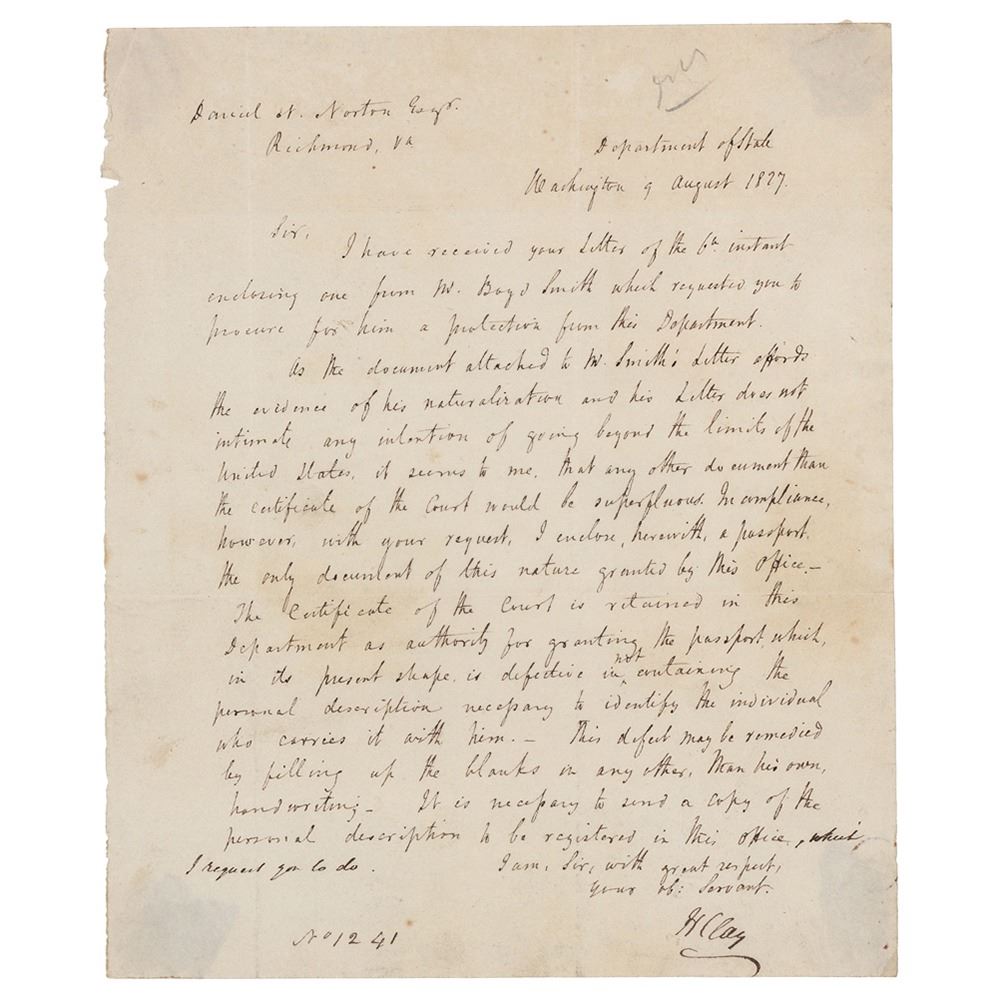 Daniel N. Norton Esqr.
Richmond, Va
Department of State
Washington 9 August 1827.
Sir,
I have received your Letter of the 6th instant
enclosing one from Mr. Boyd Smith which requested you to
procure for him a protection from this Department.
As the document attached to Mr. Smith's Letter affords
the evidence of his naturalization and his Letter does not
intimate any intention of going beyond the limits of the
United States, it seems to me, that any other document than
the certificate of the Court would be superfluous. In compliance,
however, with your request, I enclose, herewith, a passport,
the only document of this nature granted by this Office.—
The Certificate of the Court is retained in this
Department as authority for granting the passport, which,
in its present shape, is defective in not containing the
personal description necessary to identify the individual
who carries it with him. — This defect may be remedied
by filling up the blanks in any other, than his own,
handwriting — It is necessary to send a copy of the
personal description to be registered in this Office, which
I request you to do.
I am, Sir, with great respect,
Your ob: Servant.
H Clay
No 1241